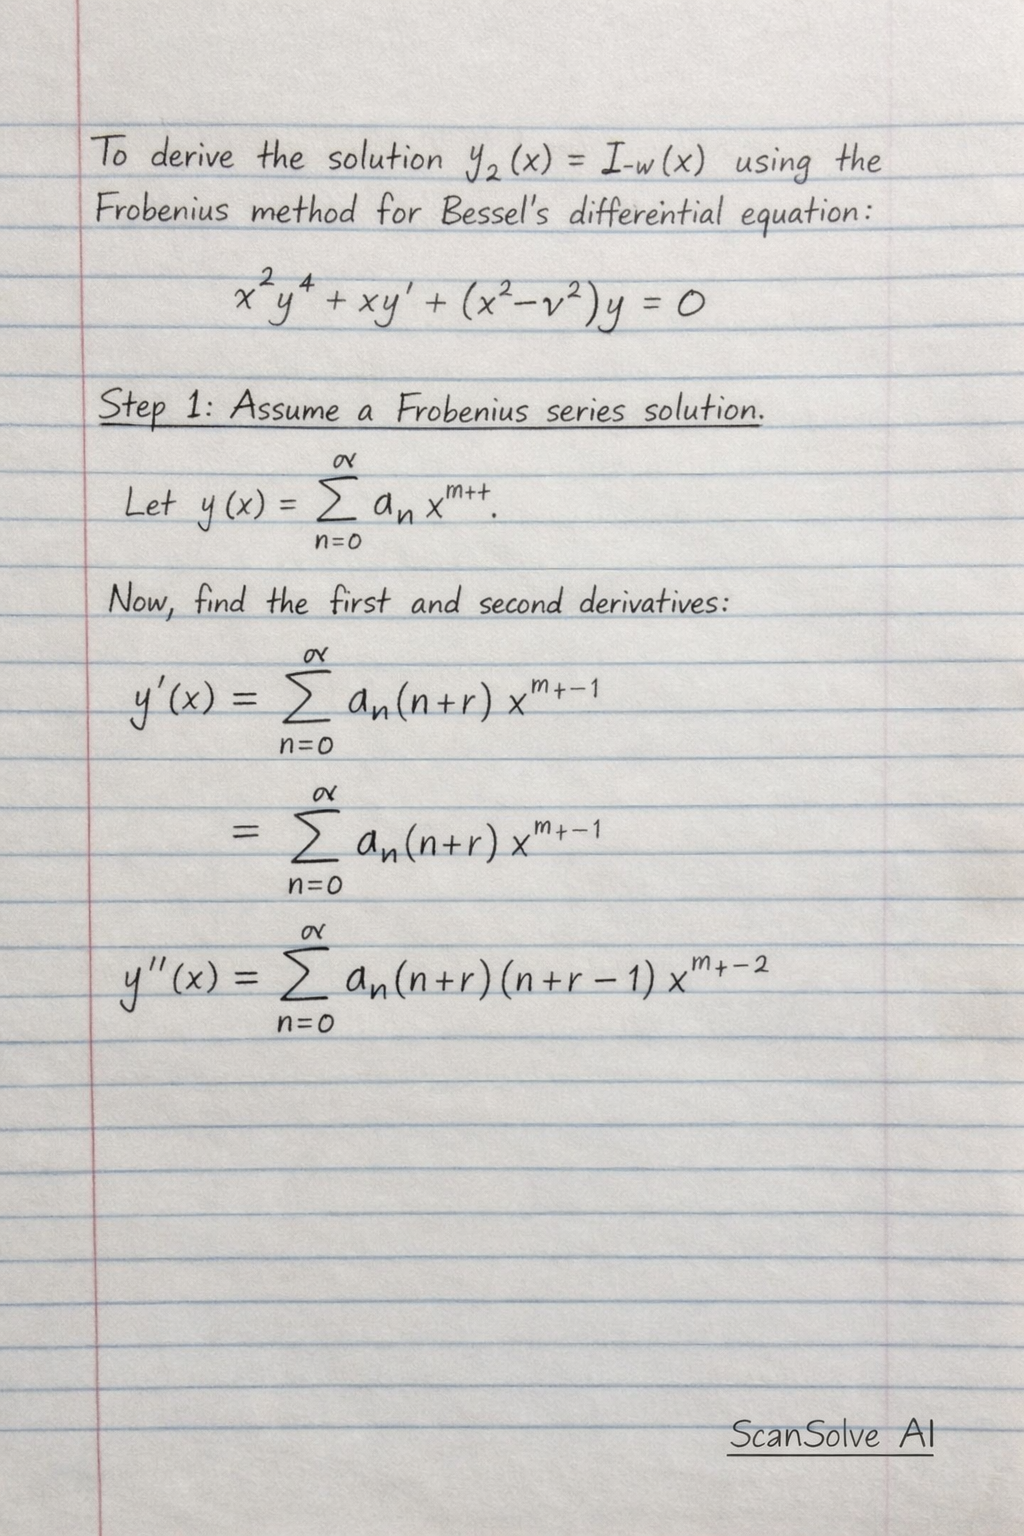 To derive the solution y₂(x) = I-w(x) using the
Frobenius method for Bessel's differential equation:
x²y⁴ + xy' + (x²-v²)y = 0
Step 1: Assume a Frobenius series solution.
Let y(x) = ∑_{n=0}^{α} aₙ x^{m++}.
Now, find the first and second derivatives:
y'(x) = ∑_{n=0}^{α} aₙ(n+r) x^{m+-1}
= ∑_{n=0}^{α} aₙ(n+r) x^{m+-1}
y''(x) = ∑_{n=0}^{α} aₙ(n+r)(n+r-1) x^{m+-2}
ScanSolve AI